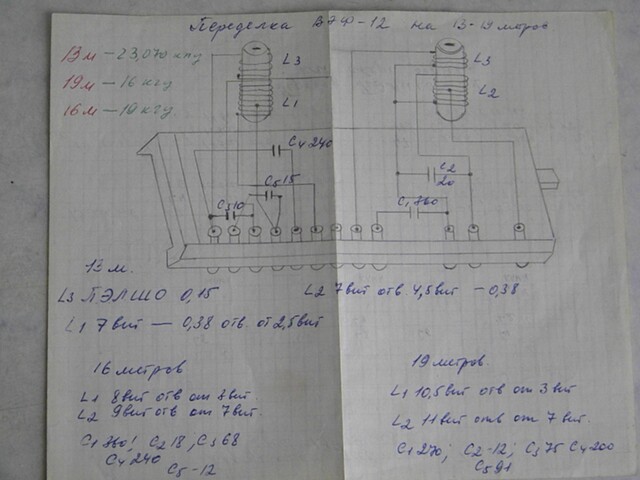 Переделка ВЭФ-12 на 13-19 метров
13м - 23,070 кгц
19м - 16 кгц
16м - 19 кгц.
L3
L1
L3
L2
C4 240
C5 15
C3 10
C2
20
C1 360
13 м.
L3 ПЭЛШО 0,15
L2 7 вит отв. 4,5 вит - 0,38
L1 7 вит — 0,38 отв. от 2,5 вит
16 метров
L1 8 вит отв от 3 вит.
L2 9 вит отв от 7 вит.
C1 360; C2 18; C3 68
C4 240
C5 - 12
19 метров.
L1 10,5 вит отв от 3 вит
L2 11 вит отв от 7 вит.
C1 270; C2 - 12; C3 75 C4 200
C5 91